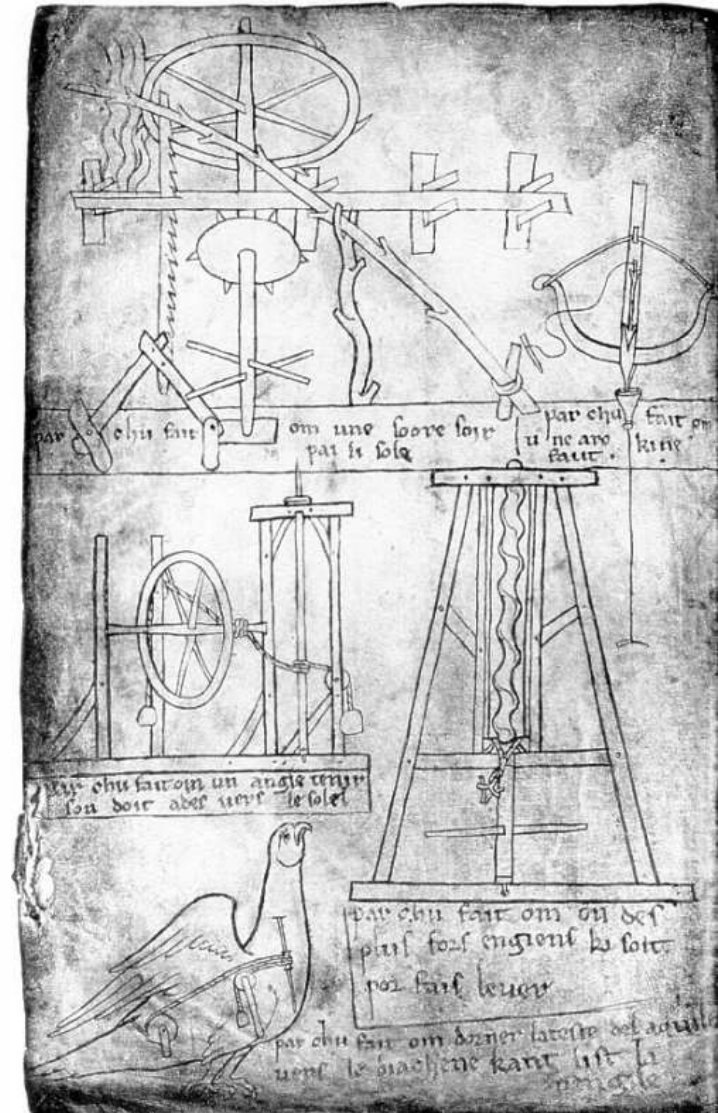 par chu fait om une soore soir
par li sole
par chu fait om
u ne arc kine
faut
par chu fait om un angle tenir
son doit ades vers le solel
par chu fait om on des
plus fors engiens ki soit
por fais lever
par chu fait om dorner lateste del aquile
vers le diachene kant list la
vengile